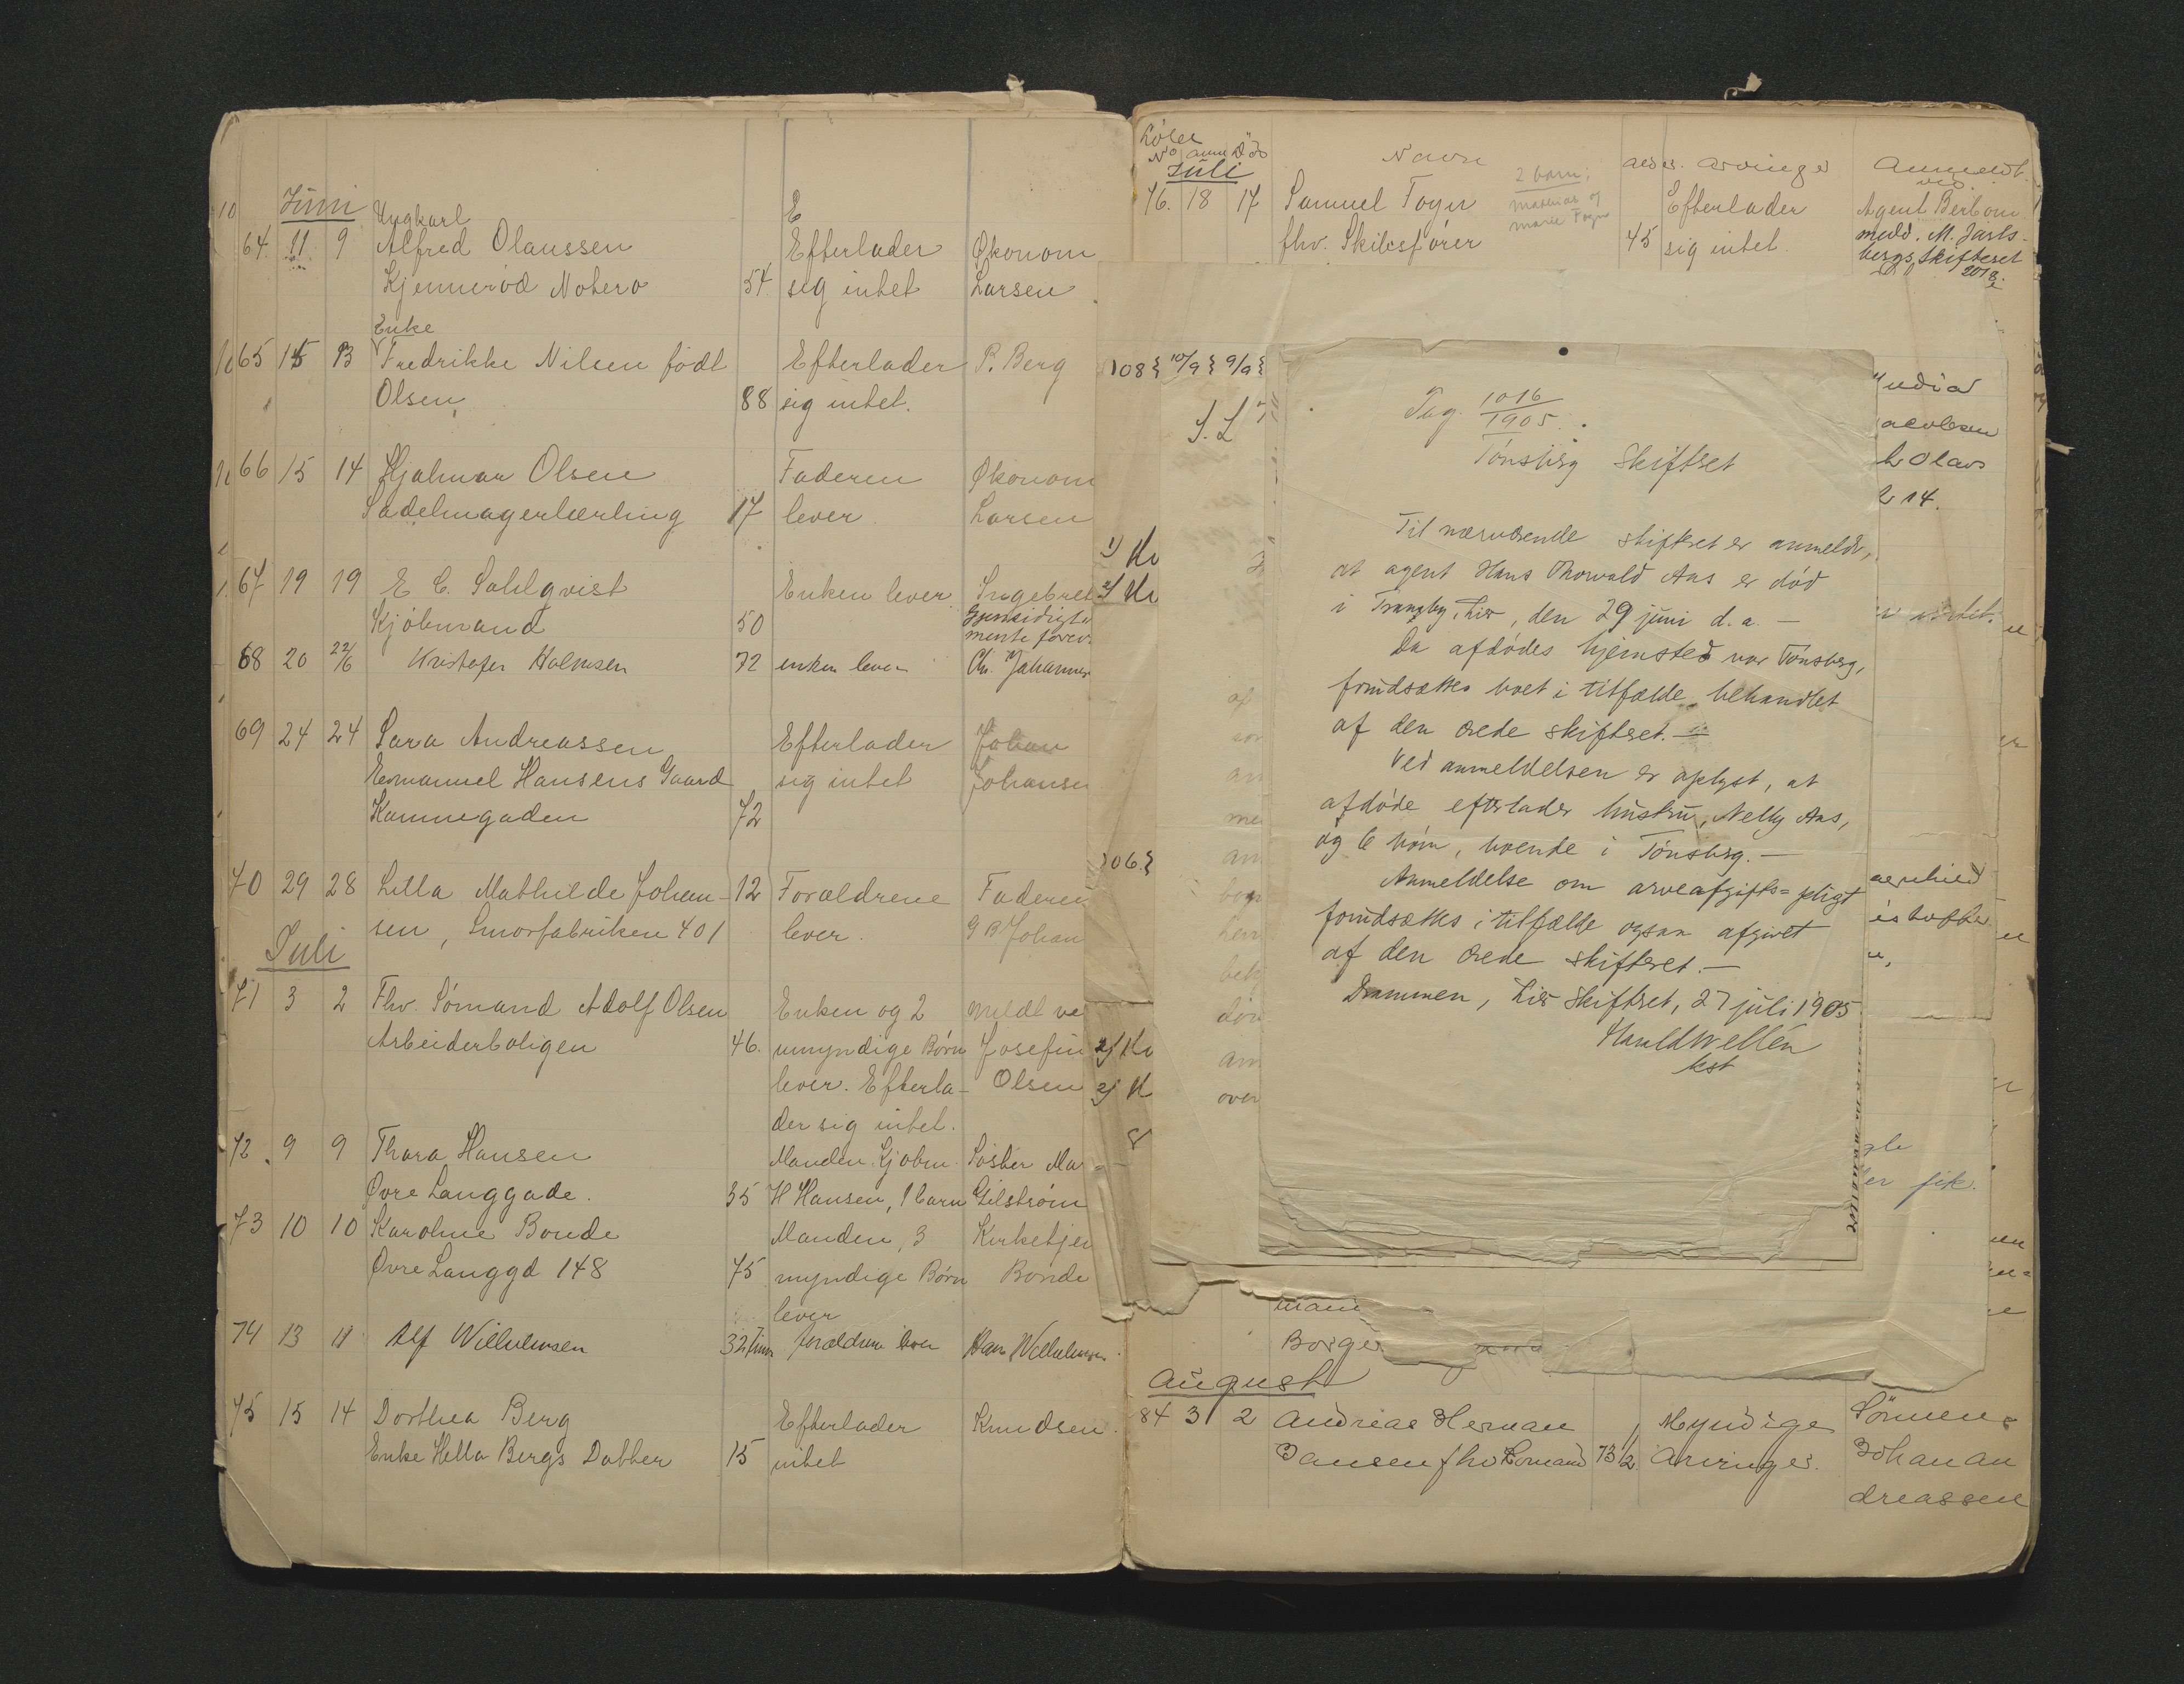 10 Juni Ungkarl E
64 11 9 Alfred Olaussen Efterlader Økonom
Kjennerød Nøterø 54 sig intet Larsen
Enke
65 15 13 Fredrikke Nilsen född Efterlader P. Berg
Olsen 88 sig intet.
66 15 14 Hjalmar Olsen Faderen Økonom
Sadelmagerlærling 17 lever Larsen
67 19 19 E C. Sahlqvist Enken lever Ingebret
Kjöbmand 50 Gjensidigt
68 20 22/6 Kristofer Holmsen 72 enken lever Chr. Johannes
69 24 24 Sara Andreassen Efterlader Johan
Emanuel Hansens Gaard sig intet Johanse
Kammegaden 72
70 29 28 Lilla Mathilde Johan- 12 Forældrene Faderen
sen, Smørfabriken 401 lever. Johan
Juli
71 3 2 Fhv. Sömand Adolf Olsen Enken og 2 meldt ve
Arbeiderboligen 46. umyndige Börn Josefin
lever. Efterla- Olsen
der sig intet.
72 9 9 Thora Hansen Manden Kjøbm. Søster Ma
Øvre Langgade. 35 H Hansen, 1 barn Gilström
73 10 10 Karoline Bonde Manden, 3 Kirketjen
Øvre Langgd 148 75 myndige Børn Bonde
lever
74 13 11 Alf Wilhelmsen 32 timer forældrene lever Hans Wilhelmsen
75 15 14 Dorthea Berg Efterlader Knudsen.
Enke Hella Bergs Datter 15 intet
Löbes
No anm Död Navn arvinger Anmeldt
Juli 2 barn: ved.
76. 18 17 Samuel Fogn Mathias og Efterlader Agent Berbom
Marie Fogn
fhv. Skibsfører 45 sig intet. medd. M. Jarls-
bergs Skifteret
108 10/9 9/9
Jag. 1016
1905.
Tönsberg Skifteret
Til nærværende skifteret er anmeldt,
at agent Hans Thorvald Aas er död
i Tranby, Lier, den 29 juni d. a. —
Da afdödes hjemsted var Tönsberg,
forudsættes boet i tilfælde behandlet
af den ærede skifteret. —
Ved anmeldelsen er oplyst, at
afdöde efterlader hustru, Nelly Aas,
og 6 börn, boende i Tönsberg. —
Anmeldelse om arveafgifts-pligt
forudsættes i tilfælde ogsaa afgivet
af den ærede skifteret. —
Drammen, Lier Skifteret, 27 juli 1905
Harald Wellén
kst
L Olavs
2 14.
106
af
am
over
er fik.
Borge
August
84 3 2 Andreas Herman Myndige Sönnen
Jansen fhv Sömand 73 1/2 Arvinger. Johan An
dreassen